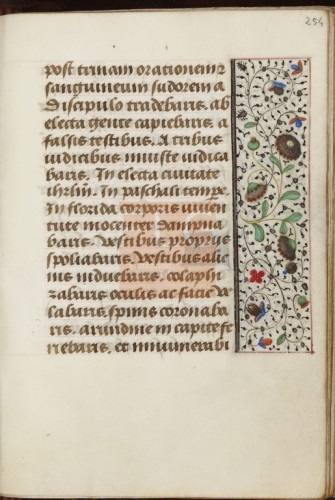 254
post trinam orationem ⁊
sanguineum sudorem a
Discipulo tradebaris. ab
electa gente capiebaris. a
falsis testibus. A tribus
iudicibus iniuste iudica
baris. In electa ciuitate
ihrlm. In paschali tempe.
In florida corporis iuuen
tute innocenter dampna
baris. Vestibus propriis
spoliabaris. Vestibus alie
nis induebaris. colaphi
zabaris oculis ac facie ve
labaris. spinis coronaba
ris. arundine in capite fe
riebaris. et innumerabi